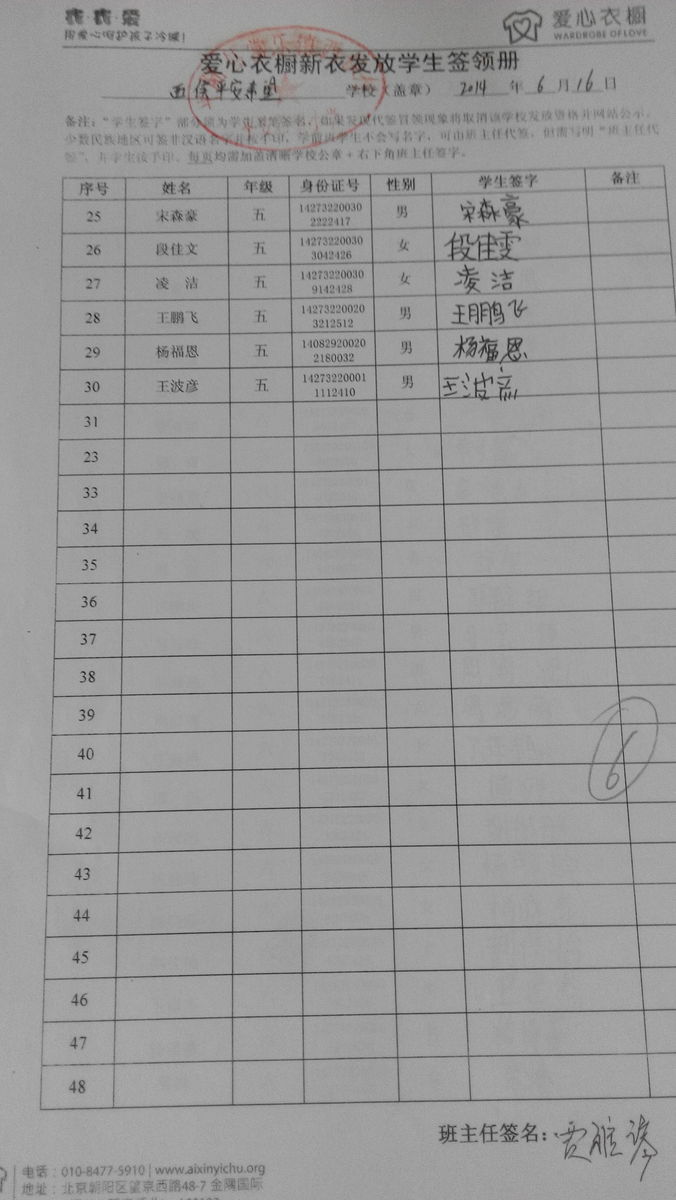 我爱心呵护孩子冷暖!
爱心衣橱
WARDROBE OF LOVE
爱心衣橱新衣发放学生签领册
学校(盖章) 2014 年 6 月 16 日
备注:"学生签字"部分须为学生亲笔签名,如果发现代签冒领现象将取消该学校发放资格并网站公示。
少数民族地区可签非汉语名字并按手印,学前班学生不会写名字,可由班主任代签,但需写明"班主任代
签",并学生按手印。每页均需加盖清晰学校公章+右下角班主任签字。
序号 姓名 年级 身份证号 性别 学生签字 备注
25 宋森豪 五 14273220030 2222417 男 宋森豪
26 段佳文 五 14273220030 3042426 女 段佳雯
27 凌 洁 五 14273220030 9142428 女 凌洁
28 王鹏飞 五 14273220020 3212512 男 王鹏飞
29 杨福恩 五 14082920020 2180032 男 杨福恩
30 王波彦 五 14273220001 1112410 男 王波彦
31
23
33
34
35
36
37
38
39
40
6
41
42
43
44
45
46
47
48
班主任签名:
电话:010-8477-5910 | www.aixinyichu.org
地址:北京朝阳区望京西路48-7 金隅国际